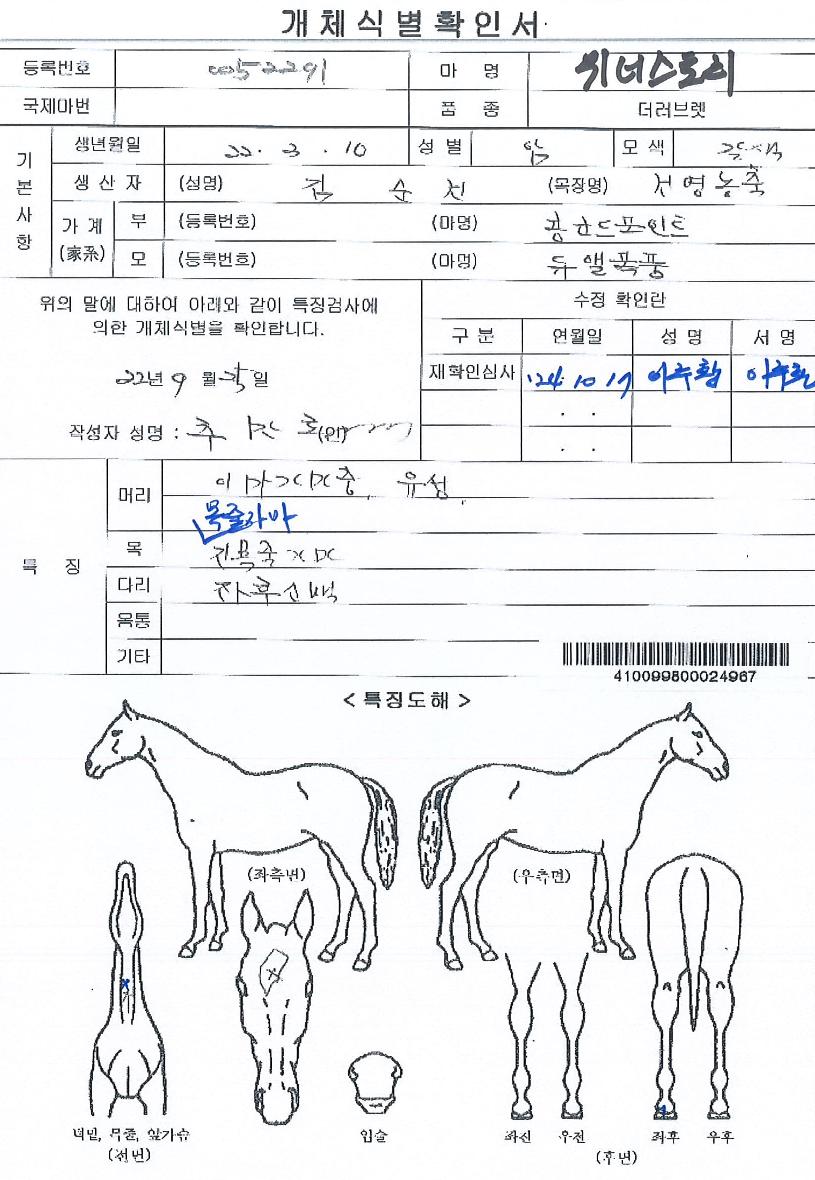 개체식별확인서
등록번호 0052291 마 명 위너스토리
국제마번 품 종 더러브렛
기본사항
생년월일 22. 3. 10 성 별 암 모 색 갈색
생 산 자 (성명) 김 순 진 (목장명) 서영농축
가 계 (家系) 부 (등록번호) (마명)
모 (등록번호) (마명) 듀앨폭풍
위의 말에 대하여 아래와 같이 특징검사에
의한 개체식별을 확인합니다.
22년 9 월 일
작성자 성명 : 추 (인)
수정 확인란
구 분 연월일 성 명 서 명
재확인심사 '24. 10. 17
. .
. .
특 징
머리 유성.
목줄가마
목
다리 좌후소백
몸통
기타
410099800024967
< 특징도해 >
(좌측면) (우측면)
턱밑, 목줄, 앞가슴
(전면)
입술
좌전 우전 좌후 우후
(후면)